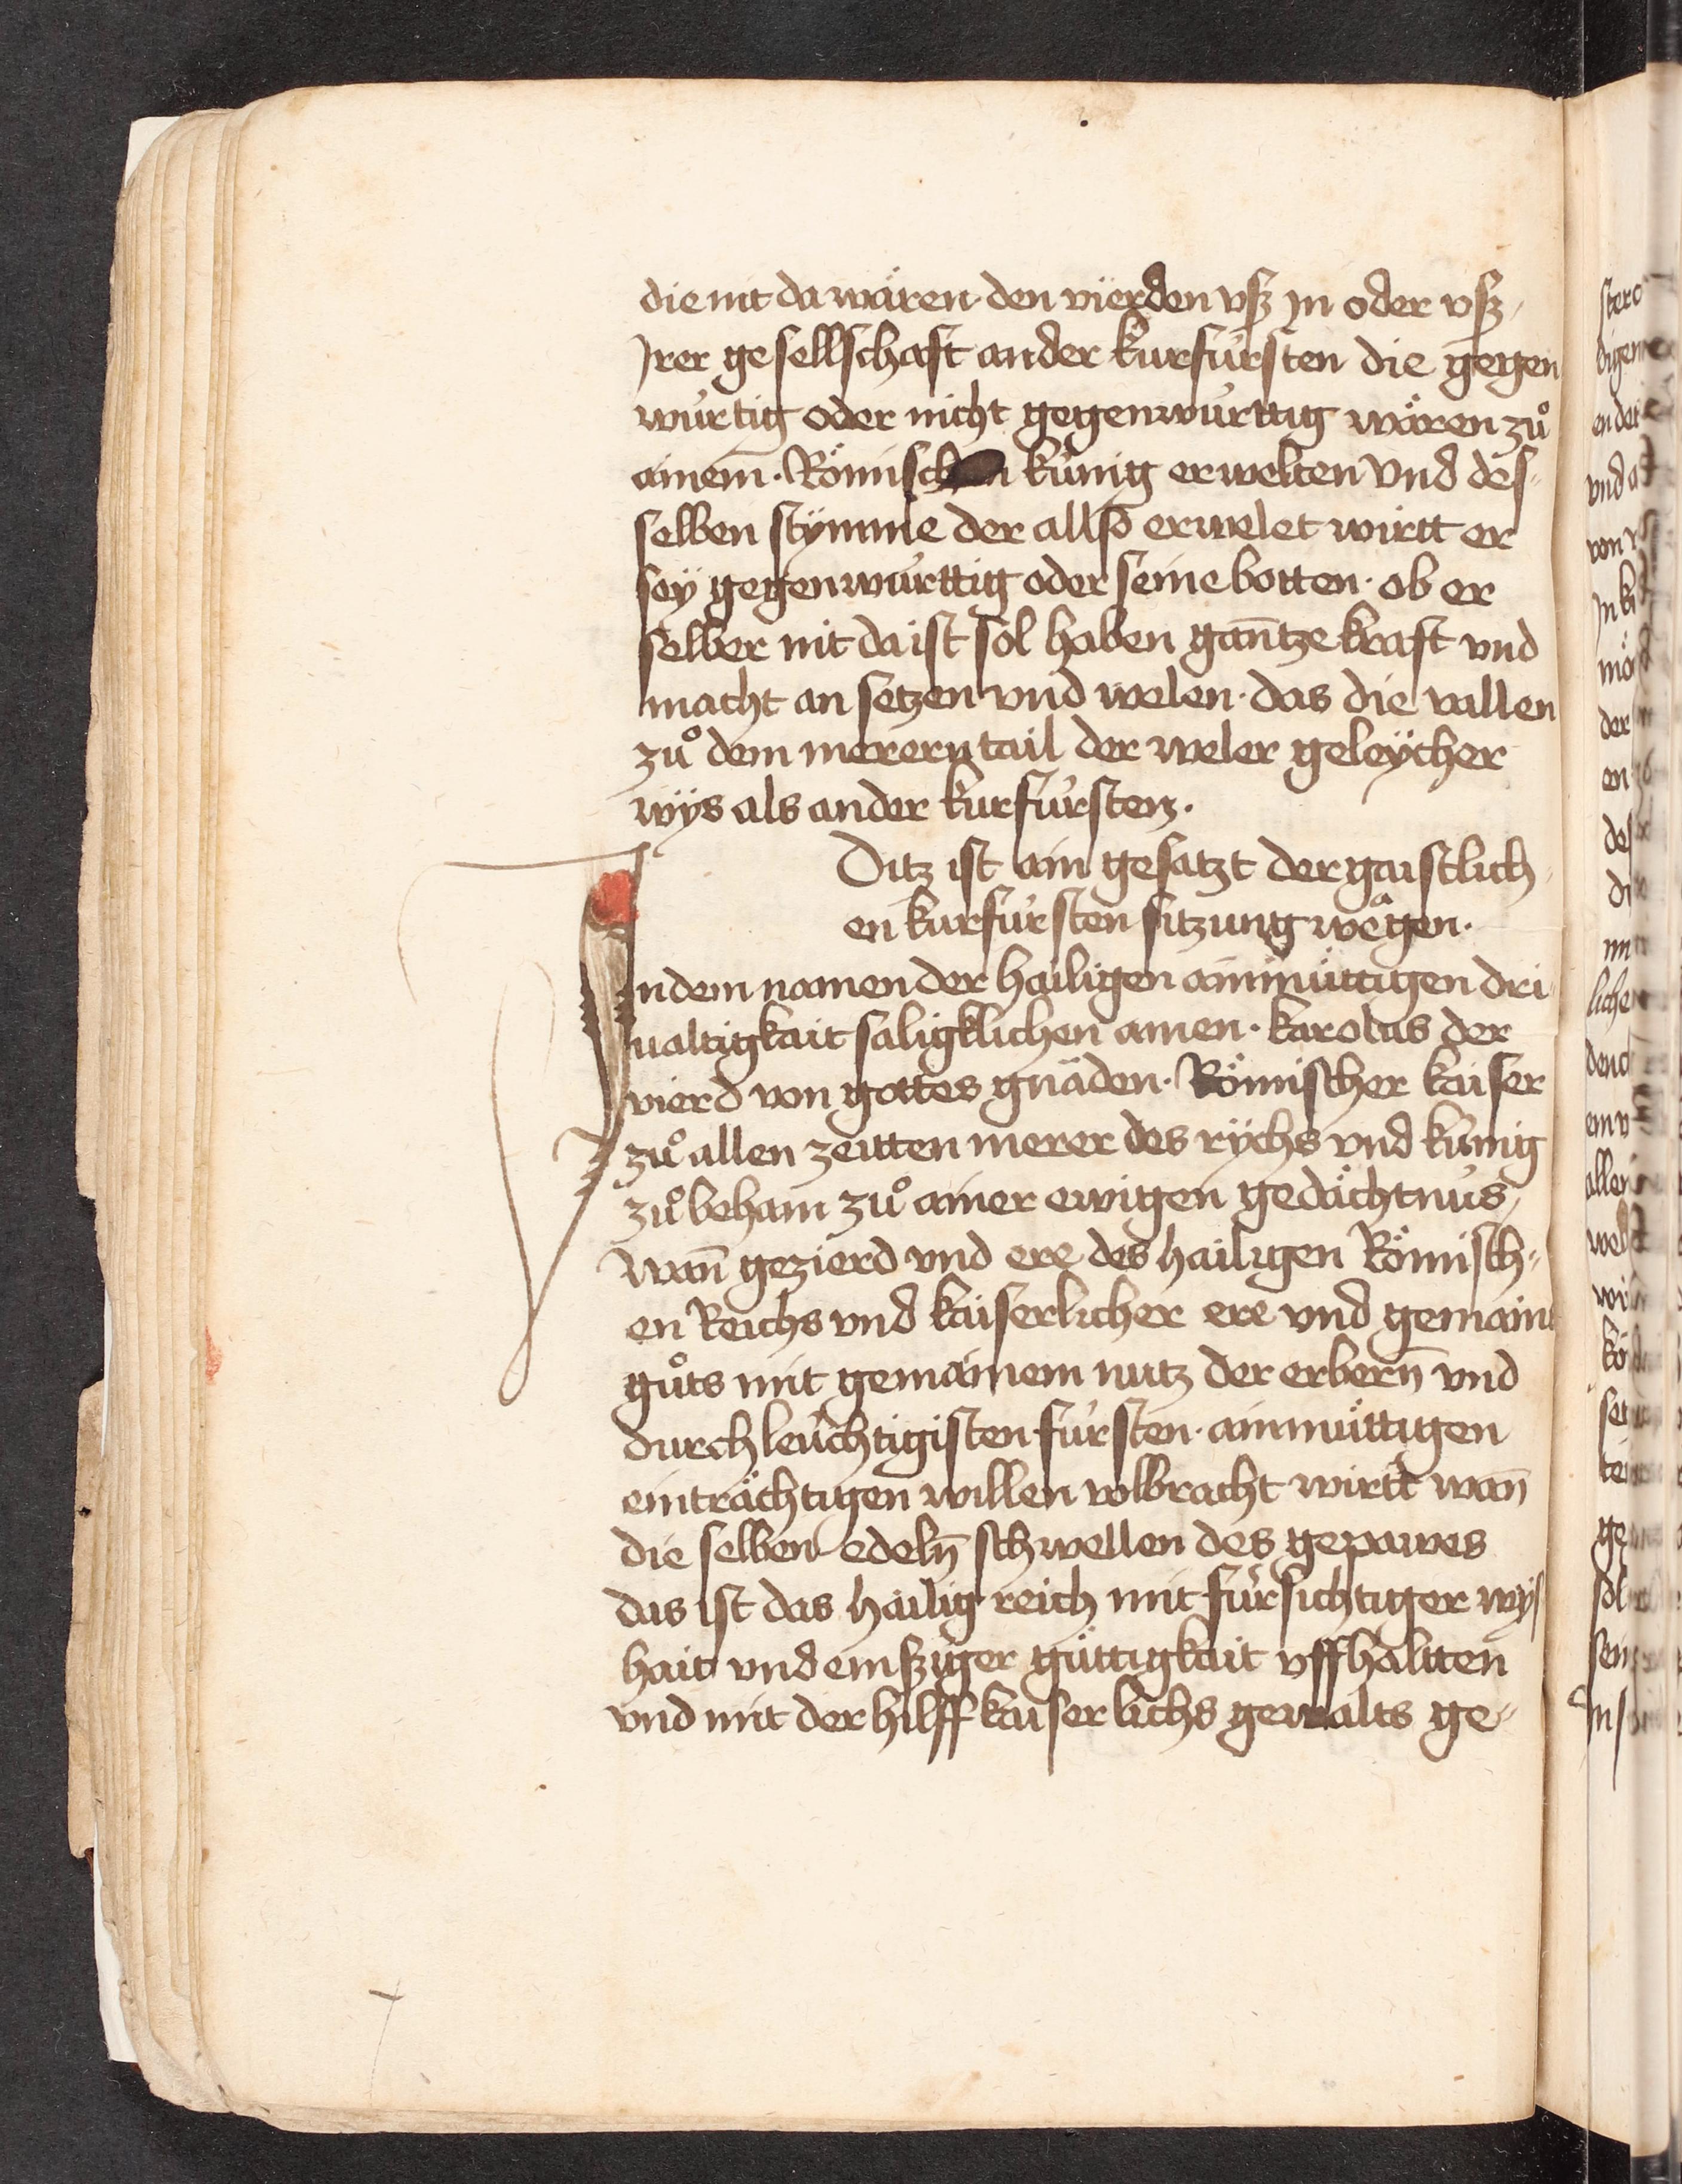 die nit da wären · den vierden vsz jn oder vsz
Jrer gesellschaft ander kurfürsten die gegen
würtig oder nicht gegenwürttig wären zů
ainem̄ · Römischen künig erwelten Vnd des-
selben stÿmme der allso erwelet wirtt er
seÿ gegenwürttig oder seine botten · ob er
selber nit da ist sol haben gan̄tze kraft vnd
macht an setzen vnd welen · das die vallen
zů dem merern tail der weler geleÿcher
wÿs als ander kurfürsten ·
Ditz ist ain gesatzt der gaistlich
en kurfürsten sitzung wegen ·
Jn dem namen der hailigen ainmüttigen dri
ualtigkait saligklichen amen · karolus der
vierd von gottes gnäden · Römischer kaiser
zů allen zeitten merer des rÿchs vnd künig
zů beham zů ainer ewigen gedächtnüs
Wan̄ gezierd vnd ere des hailigen Römisch-
en Reichs vnd kaiserlicher ere vnd gemains
gůts mit gemainem nutz der erbern̄ vnd
durchleüchtigisten fürsten · ainmüttigen
einträchtigen willen volbracht wirtt wan̄
die selben edeln̄ schwellen des gepawes
das ist das hailig reich mit fürsichtiger wÿs
hait vnd emsziger güttigkait vffhaltten
vnd mit der hilff kaiserlichs gewalts ge-